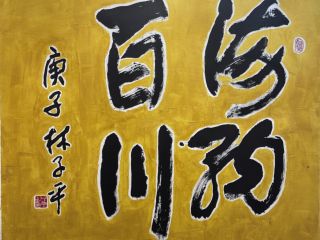 海纳
百川
庚子 林子平